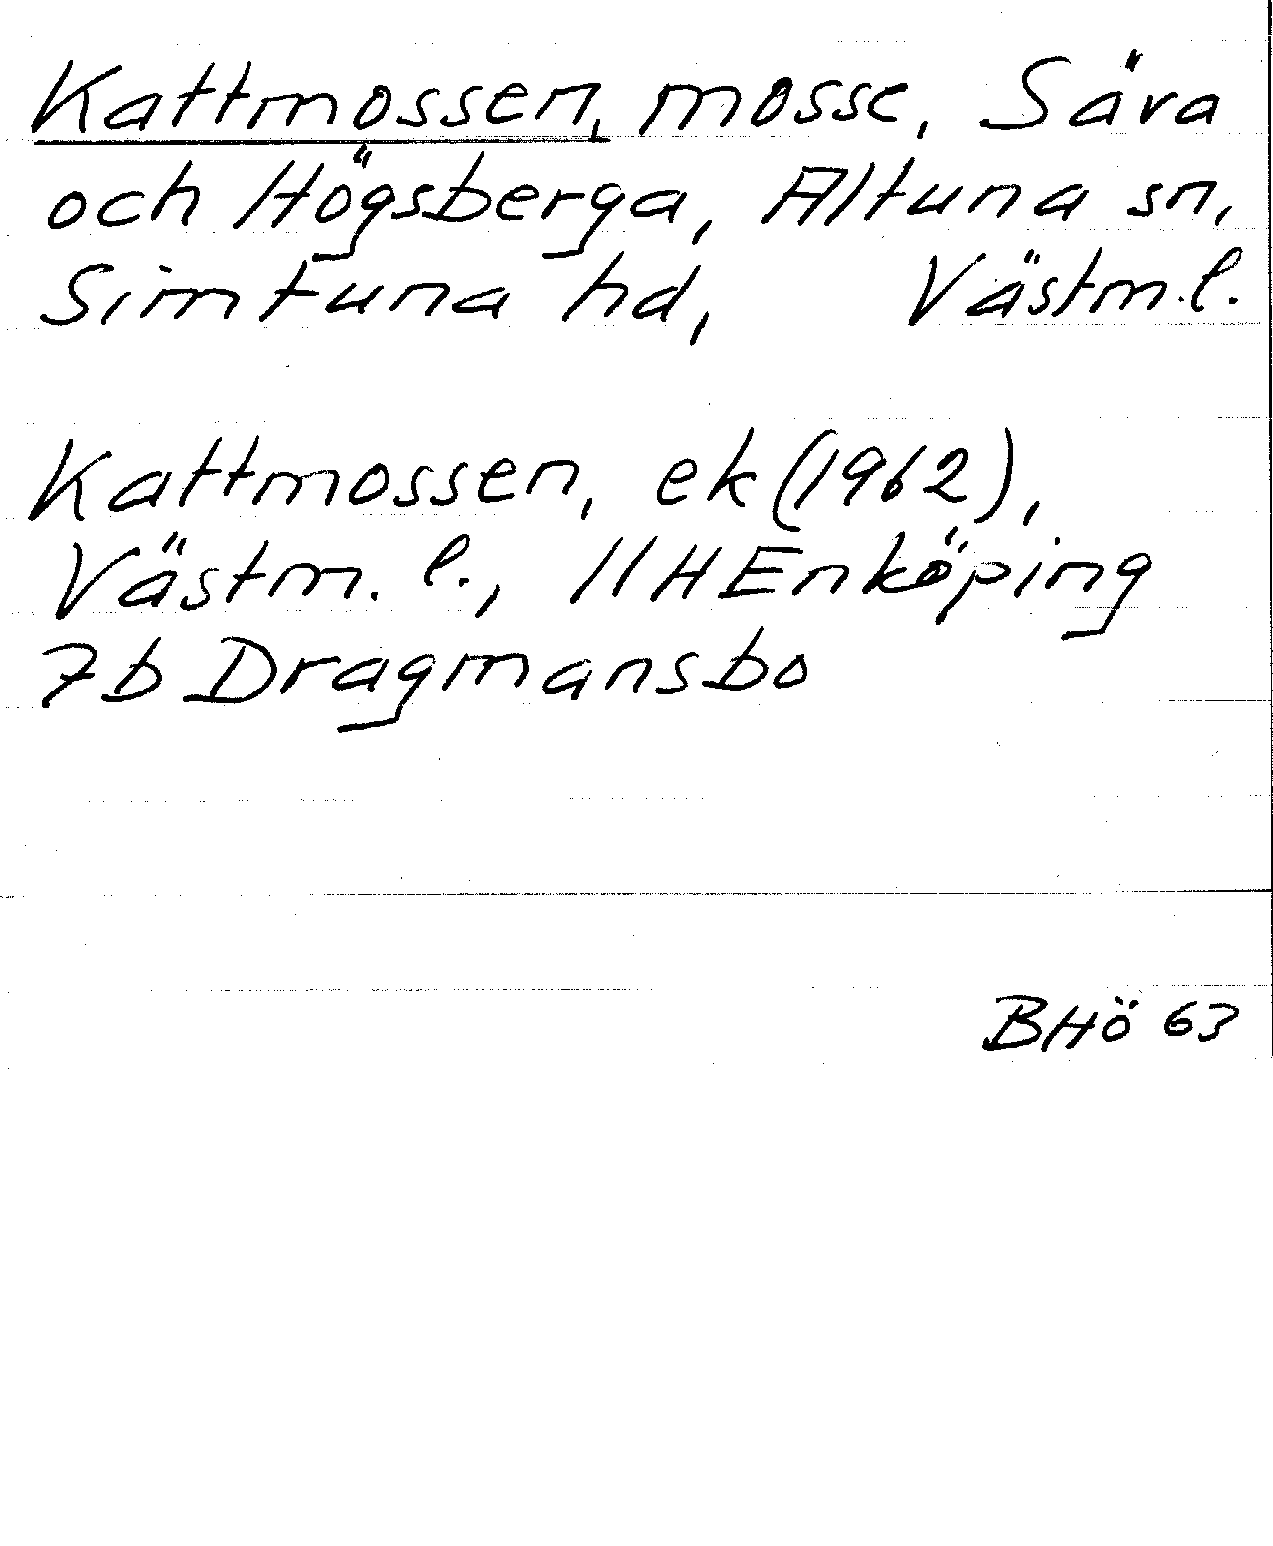 Kattmossen, mosse, Sära
och Högsberga, Altuna sn,
Simtuna hd, Västm.l.
Kattmossen, ek (1962),
Västm. l., 11H Enköping
7b Dragmansbo
BHö 63